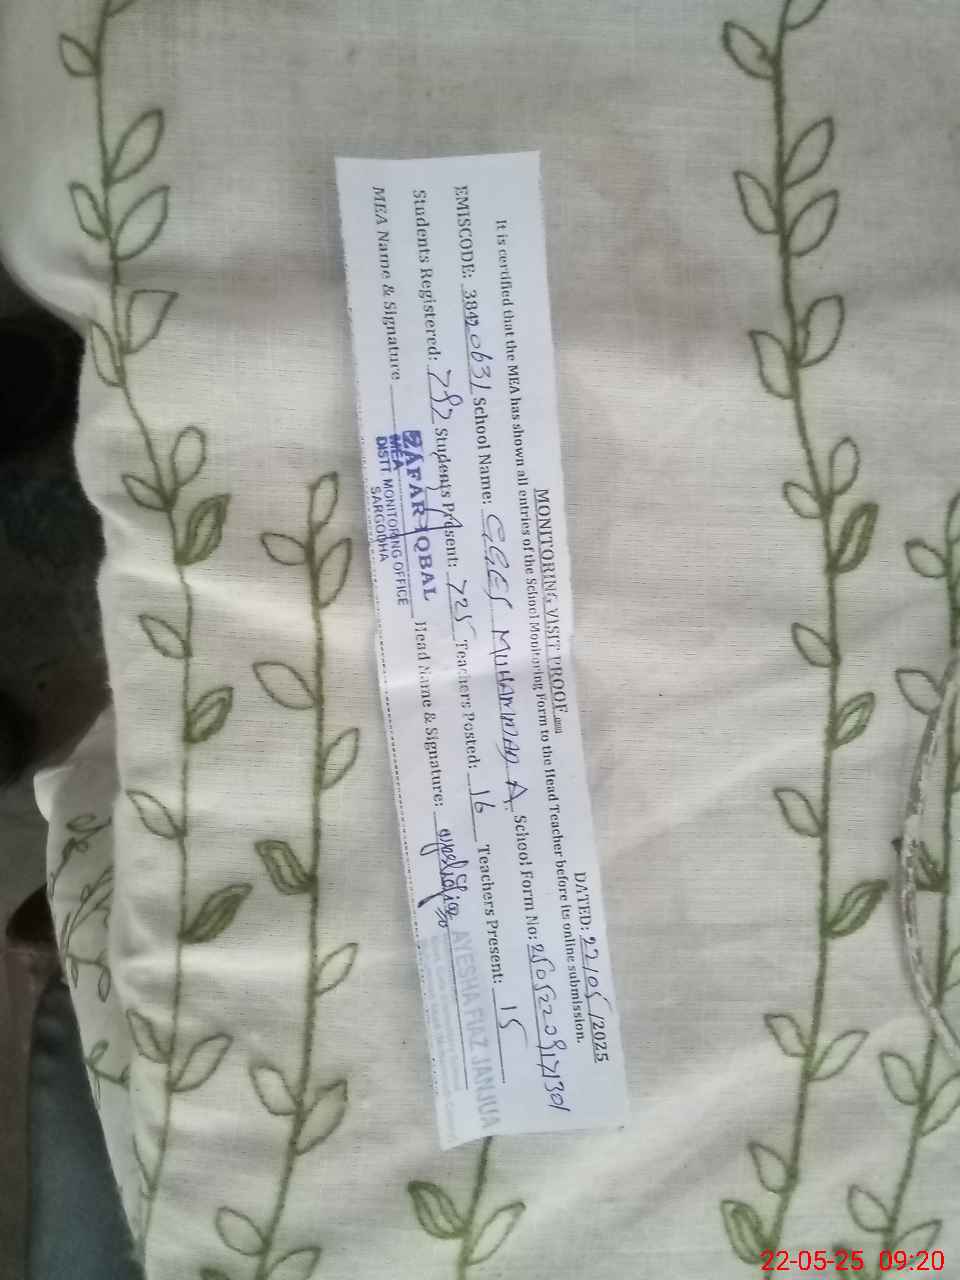 MONITORING VISIT PROOF
DATED: 22/05/2025
It is certified that the MEA has shown all entries of the School Monitoring Form to the Head Teacher before its online submission.
EMISCODE: 38420631 School Name: GGES MUHAMMAD A. School Form No:
Students Registered: 782 Students Present: 725 Teachers Posted: 16 Teachers Present: 15
MEA Name & Signature Head Name & Signature:
ZAFAR IQBAL
MEA
DISTT MONITORING OFFICE
SARGODHA
AYESHA FIAZ JANJUA
22-05-25 09:20